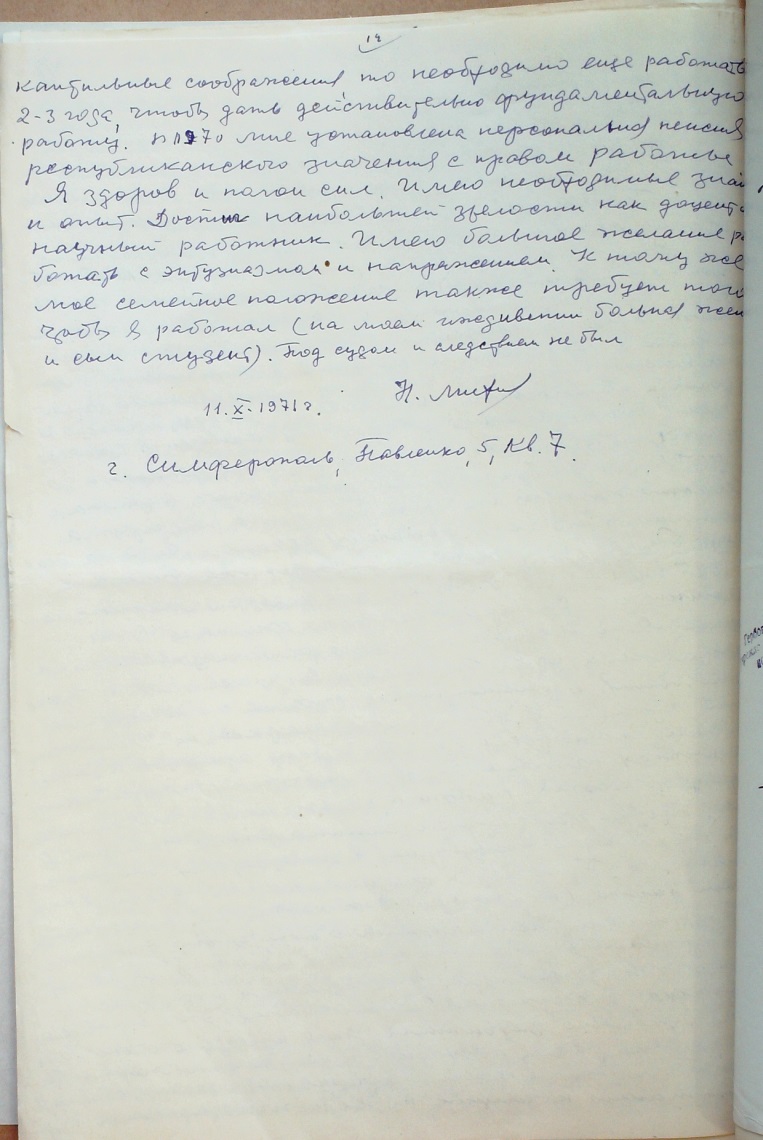 14
кантильные соображения то необходимо еще работать
2-3 года, чтобы дать действительно фундаментальную
работу. В 1970 мне установлена персональная пенсия
республиканского значения с правом работы
Я здоров и полон сил. Имею необходимые знан
и опыт. Достиг наибольшей зрелости как доцент и
научный работник. Имею большое желание ра
ботать с энтузиазмом и напряжением. К тому же
мое семейное положение также требует того
чтобы я работал (на моем иждивении больная жена
и сын студент). Под судом и следствием не был
11.X.1971 г. Н.
г. Симферополь, Павленко, 5, Кв. 7.